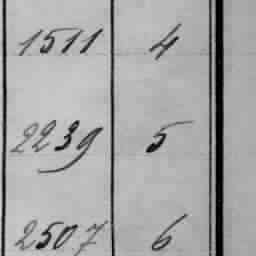 1511 4
2239 5
2507 6